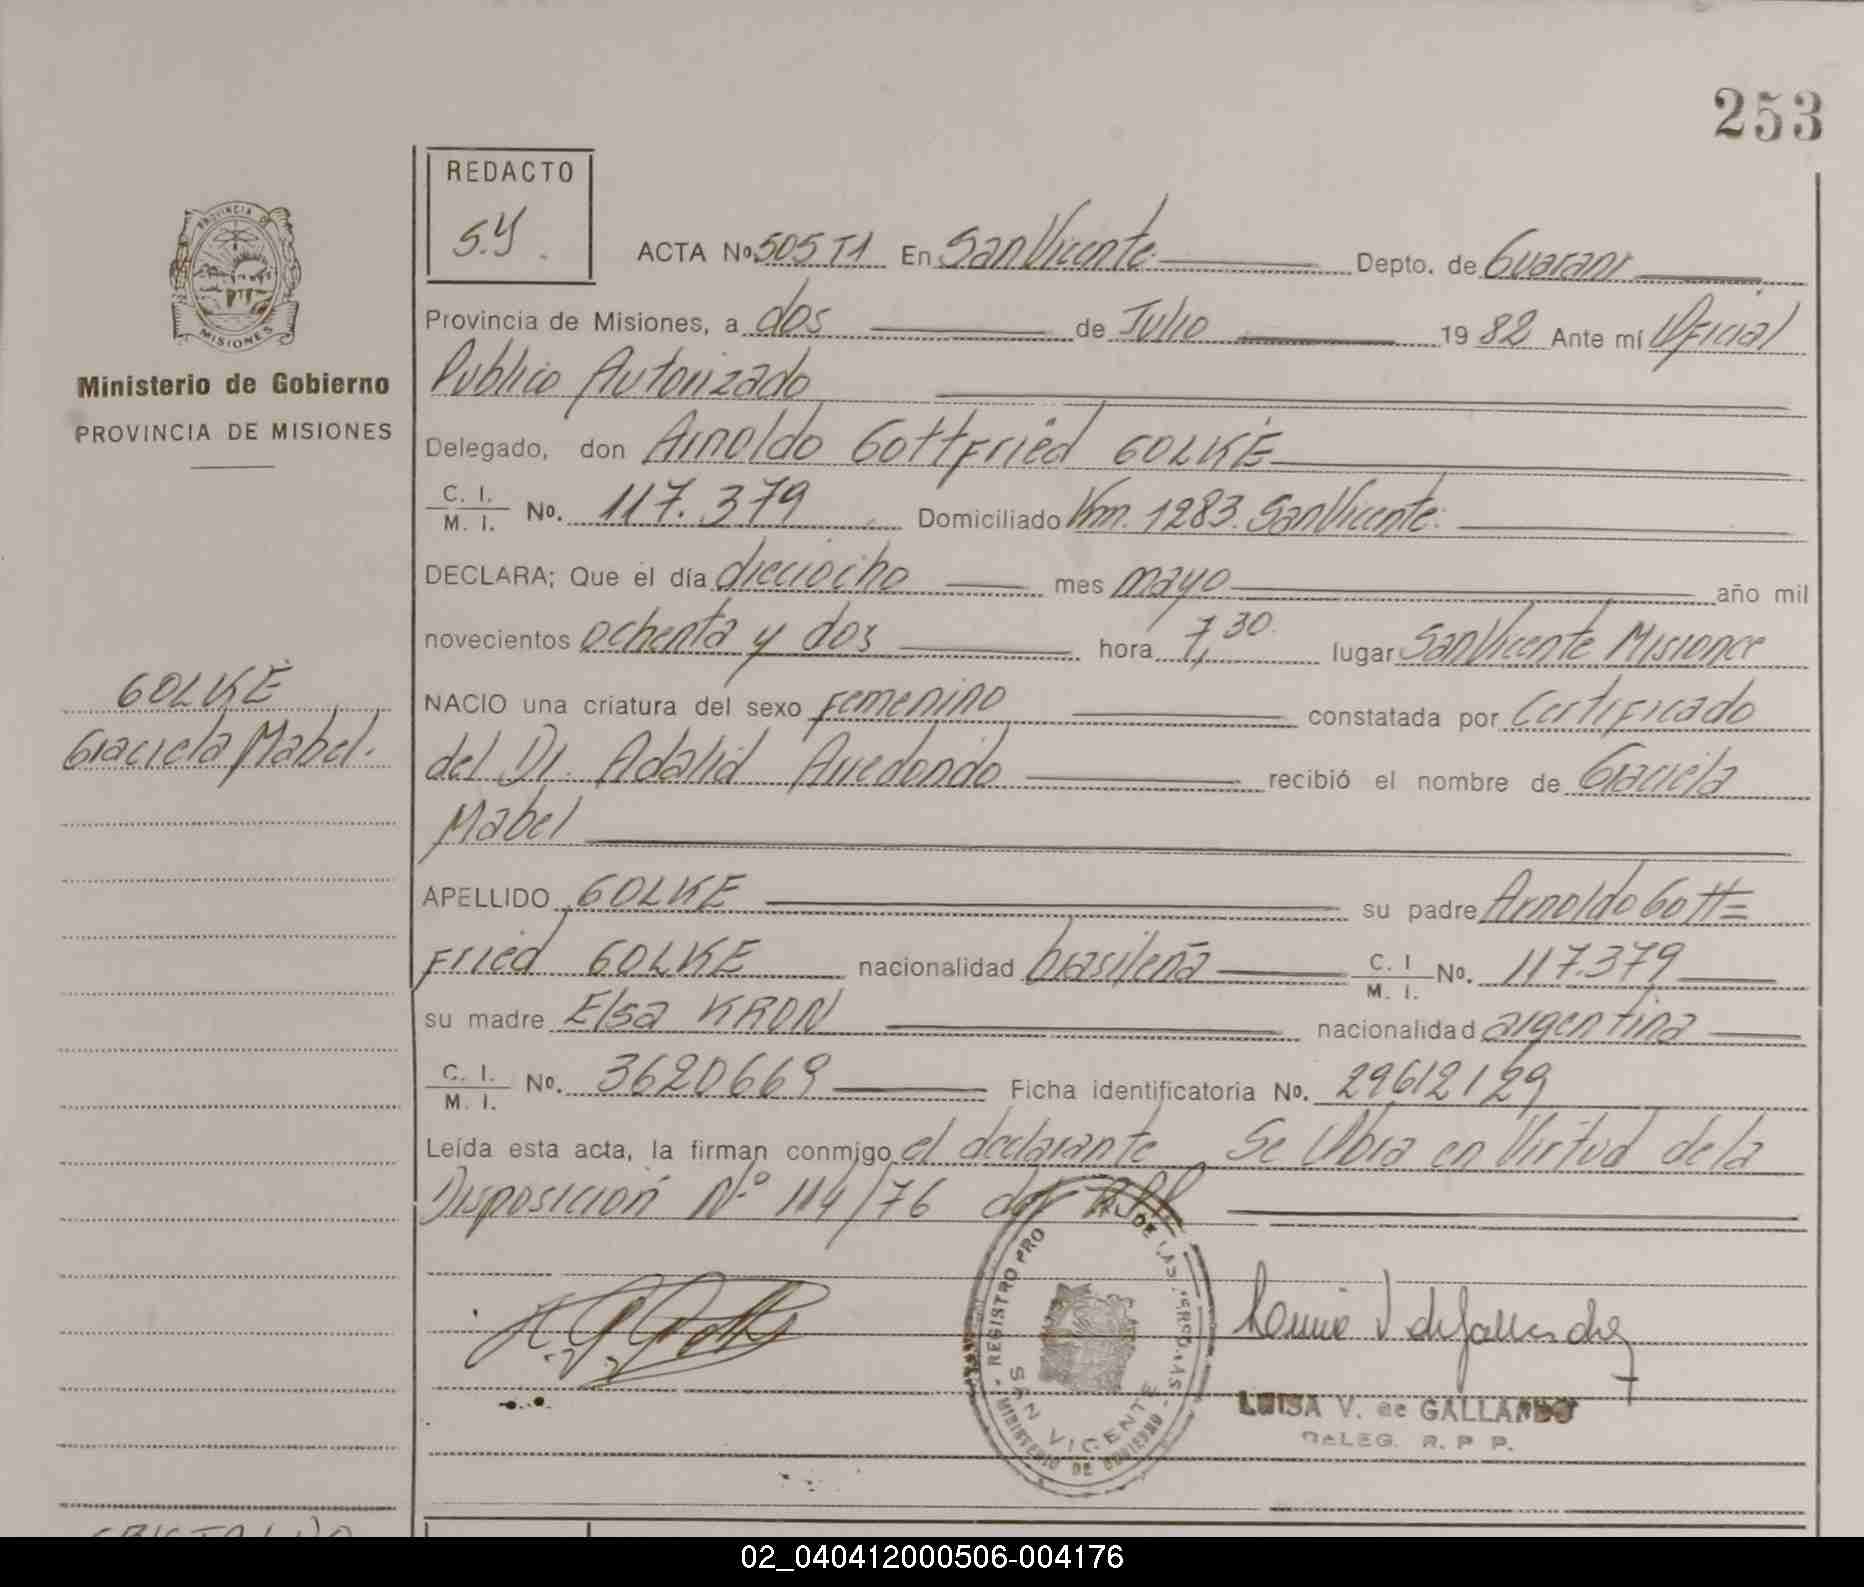 253
REDACTO
S.Y.
PROVINCIA DE
MISIONES
Ministerio de Gobierno
PROVINCIA DE MISIONES
GOLKE
Graciela Mabel.
ACTA No 505 T1 En San Vicente. Depto. de Guarani
Provincia de Misiones, a dos de Julio 1982 Ante mí Oficial
Publico Autorizado
Delegado, don Arnoldo Gottfried GOLKE
C. I. / M. I. No. 117.379 Domiciliado Km. 1283. San Vicente.
DECLARA; Que el día dieciocho mes mayo año mil
novecientos ochenta y dos hora 7,30. lugar San Vicente Misiones
NACIO una criatura del sexo Femenino constatada por Certificado
del Dr. Adalid Arredondo recibió el nombre de Graciela
Mabel
APELLIDO GOLKE su padre Arnoldo Gott=
fried GOLKE nacionalidad brasileña C. I / M. I. No. 117.379
su madre Elsa KRON nacionalidad argentina
C. I. / M. I. No. 3620669 Ficha identificatoria No. 29612129
Leída esta acta, la firman conmigo el declarante Se Obra en Virtud de la
Disposicion N° 114/76 del RPP
REGISTRO PRO DE LAS PERSONAS
SAN VICENTE
MINISTERIO DE GOBIERNO
LUISA V. de GALLARDO
DELEG. R. P. P.
02_040412000506-004176